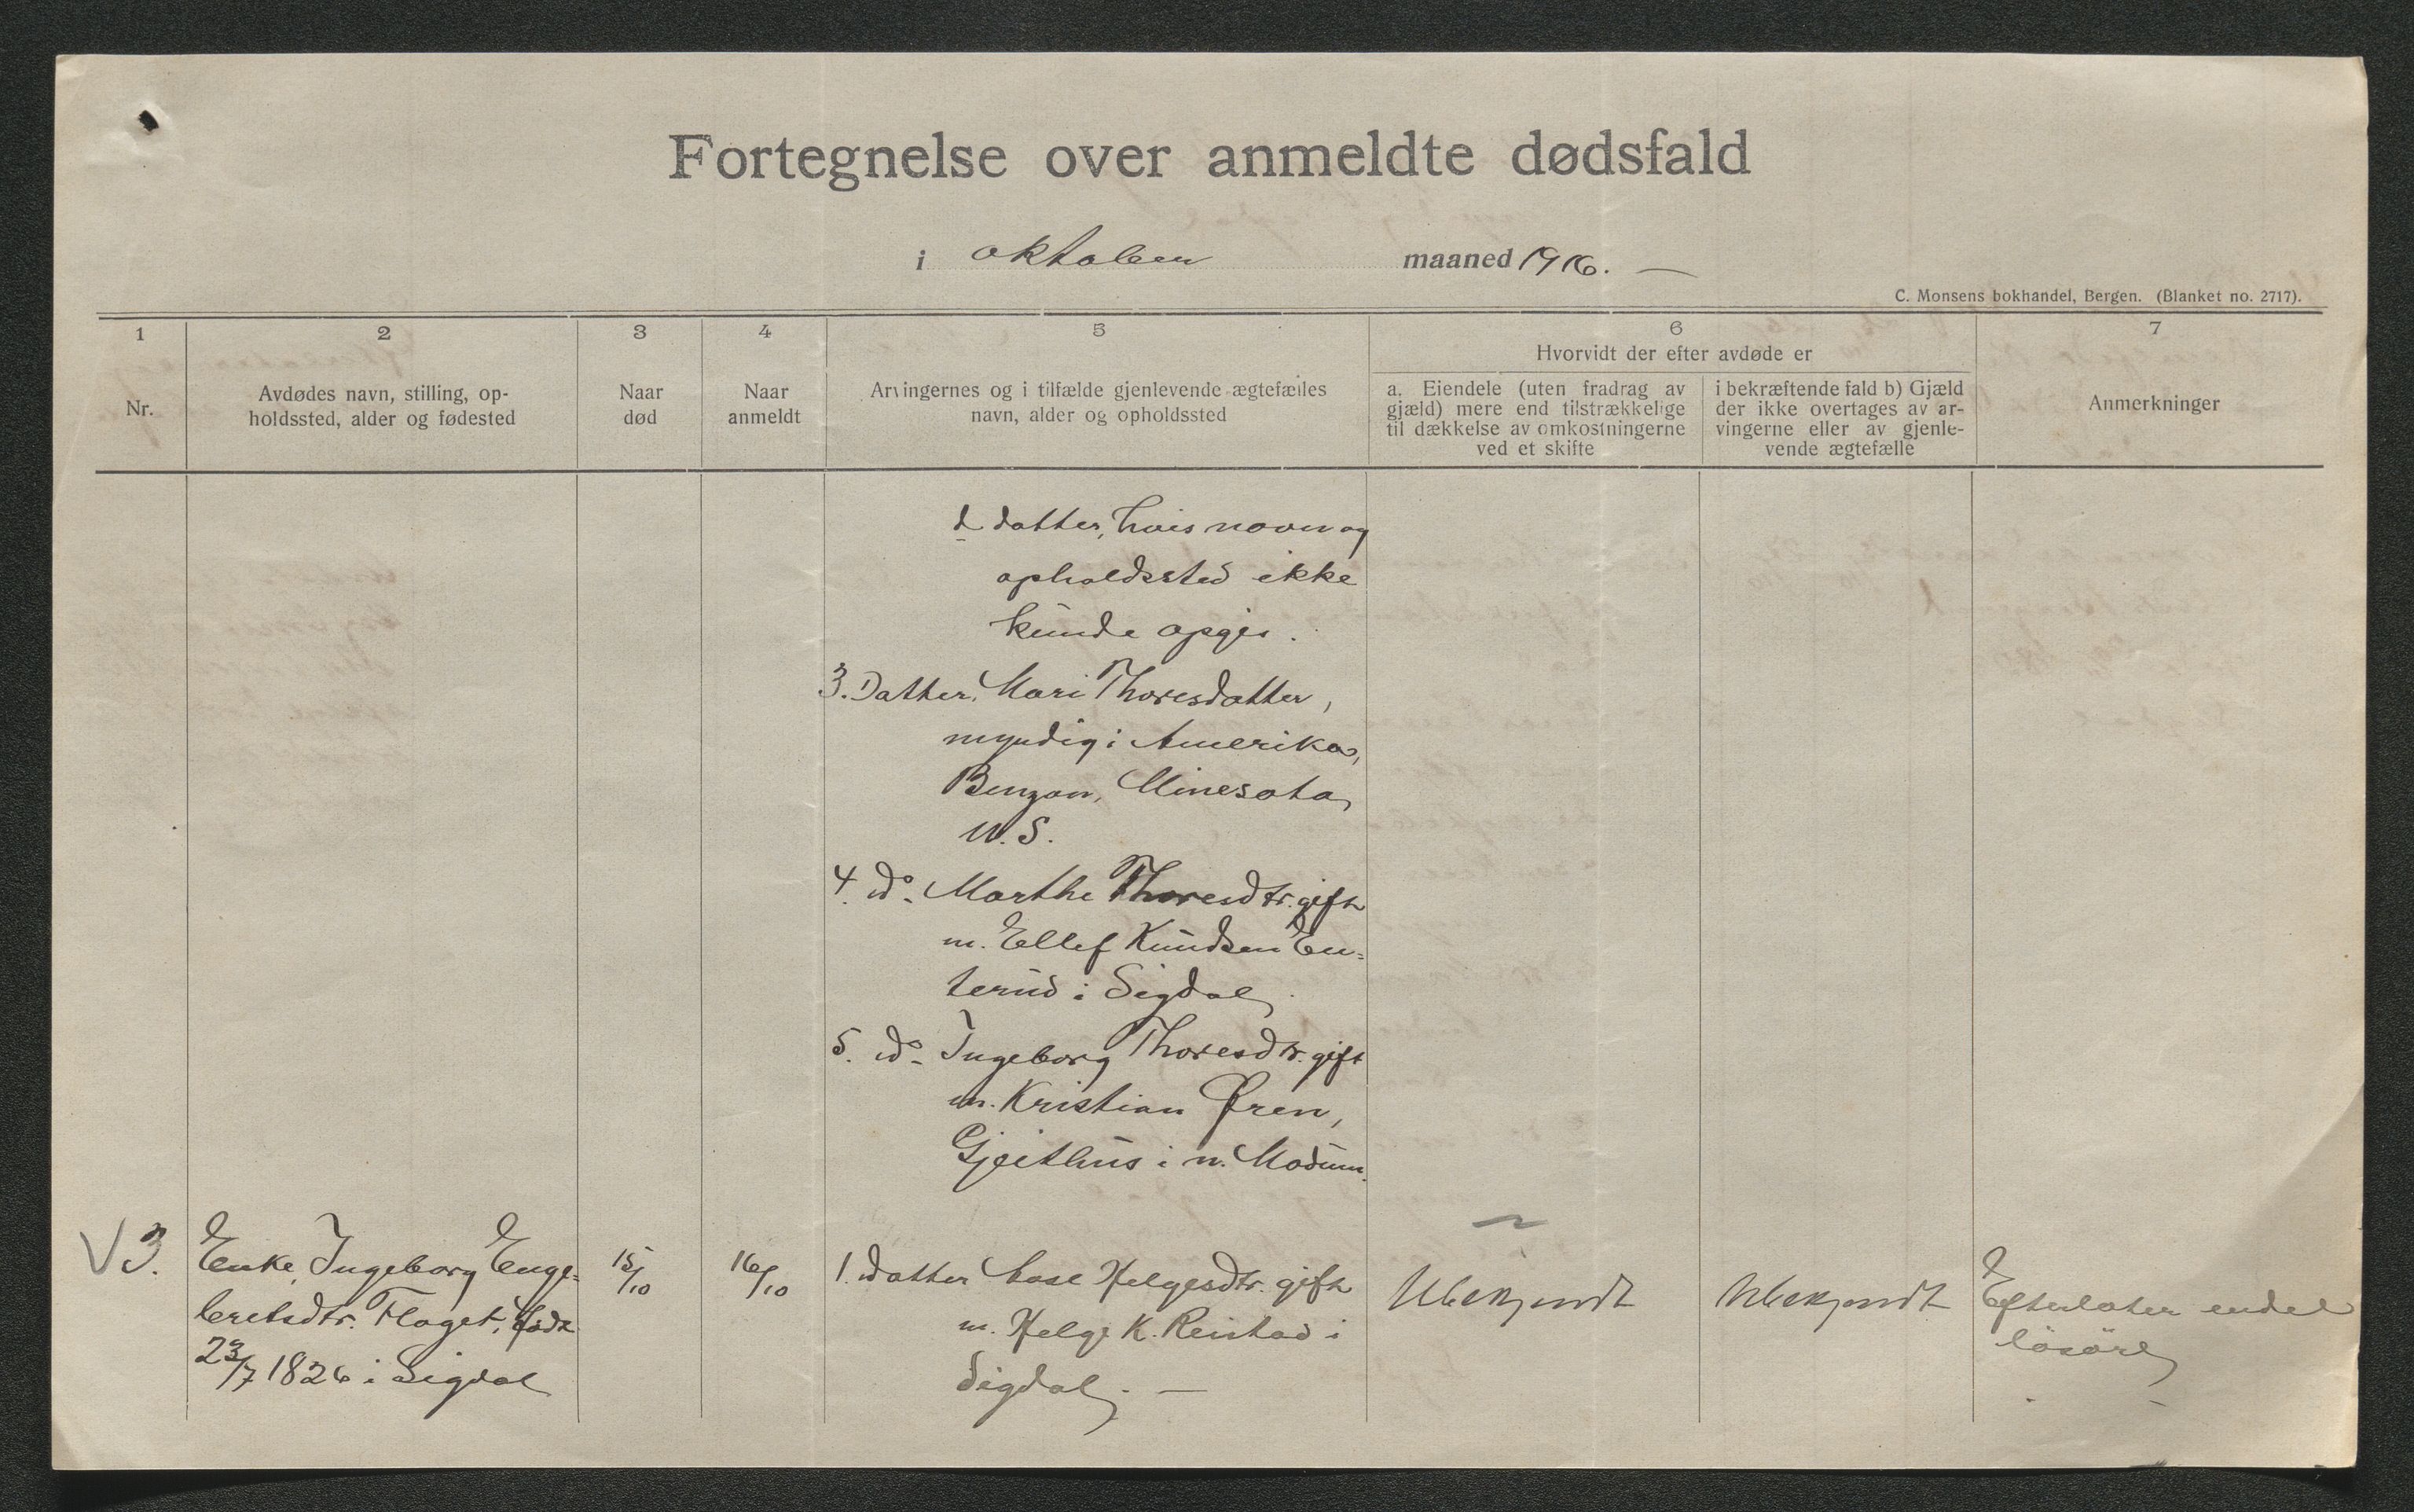 Fortegnelse over anmeldte dødsfald
i oktober maaned 1916. —
C. Monsens bokhandel, Bergen. (Blanket no. 2717).
1
2
3
4
5
6
7
Nr.
Avdødes navn, stilling, op-
holdssted, alder og fødested
Naar
død
Naar
anmeldt
Arvingernes og i tilfælde gjenlevende ægtefælles
navn, alder og opholdssted
Hvorvidt der efter avdøde er
a. Eiendele (uten fradrag av
gjæld) mere end tilstrækkelige
til dækkelse av omkostningerne
ved et skifte
i bekræftende fald b) Gjæld
der ikke overtages av ar-
vingerne eller av gjenle-
vende ægtefælle
Anmerkninger
d datter, hvis navn og
opholdssted ikke
kunde opgis.
3. Datter, Mari Thoresdatter,
myndig i Amerika,
Benzon, Minesota,
U.S.
4. do. Marthe Thoresdtr. gift
m. Ellef Knudsen En=
terud i Sigdal.
5. do. Ingeborg Thoresdtr. gift
m. Kristian Øren,
Gjeithus i n. Modum.
V 3.
Enke, Ingeborg Enge=
bretsdtr. Flaget, født
23/7 1826 i Sigdal
15/10
16/10
1. datter Aase Helgesdtr. gift
m. Helge K. Reistad i
Sigdal. —
Ubekjendt
Ubekjendt
Efterlater endel
løsøre